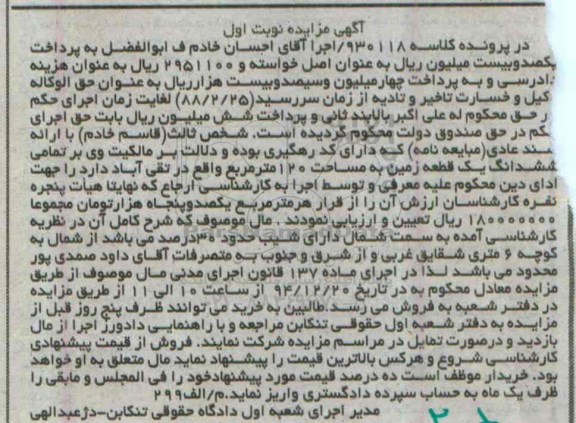 آگهی مزایده نوبت اول
در پرونده کلاسه ۹۳۰۱۱۸/اجرا آقای احسان خادم ف ابوالفضل به پرداخت
یکصدوبیست میلیون ریال به عنوان اصل خواسته و ۲۹۵۱۱۰۰ ریال به عنوان هزینه
دادرسی و به پرداخت چهارمیلیون وسیصدوبیست هزارریال به عنوان حق الوکاله
کیل و خسارت تاخیر و تادیه از زمان سررسید(۸۸/۲/۲۵) لغایت زمان اجرای حکم
ر حق محکوم له علی اکبر بالابند ثانی و پرداخت شش میلیون ریال بابت حق اجرای
کم در حق صندوق دولت محکوم گردیده است. شخص ثالث(قاسم خادم) با ارائه
سند عادی(مبایعه نامه) که دارای کد رهگیری بوده و دلالت بر مالکیت وی بر تمامی
ششدانگ یک قطعه زمین به مساحت ۱۲۰مترمربع واقع در تقی آباد دارد را جهت
ادای دین محکوم علیه معرفی و توسط اجرا به کارشناسی ارجاع که نهایتا هیأت پنجره
نفره کارشناسان ارزش آن را از قرار هرمترمربع یکصدوپنجاه هزارتومان مجموعا
۱۸۰۰۰۰۰۰۰ ریال تعیین و ارزیابی نمودند. مال موصوف که شرح کامل آن در نظریه
کارشناسی آمده به سمت شمال دارای شیب حدود ۳۰درصد می باشد از شمال به
کوچه ۶ متری شقایق غربی و از شرق و جنوب به متصرفات آقای داود صمدی پور
محدود می باشد لذا در اجرای ماده ۱۳۷ قانون اجرای مدنی مال موصوف از طریق
مزایده معادل محکوم به در تاریخ ۹۴/۱۲/۲۰ از ساعت ۱۰ الی ۱۱ از طریق مزایده
در دفتر شعبه به فروش می رسد.طالبین به خرید می توانند ظرف پنج روز قبل از
مزایده به دفتر شعبه اول حقوقی تنکابن مراجعه و با راهنمایی دادورز اجرا از مال
بازدید و درصورت تمایل در مراسم مزایده شرکت نمایند. فروش از قیمت پیشنهادی
کارشناسی شروع و هرکس بالاترین قیمت را پیشنهاد نماید مال متعلق به او خواهد
بود. خریدار موظف است ده درصد قیمت مورد پیشنهادخود را فی المجلس و مابقی را
ظرف یک ماه به حساب سپرده دادگستری واریز نماید.م/الف۲۹۹
مدیر اجرای شعبه اول دادگاه حقوقی تنکابن-دژعبدالهی